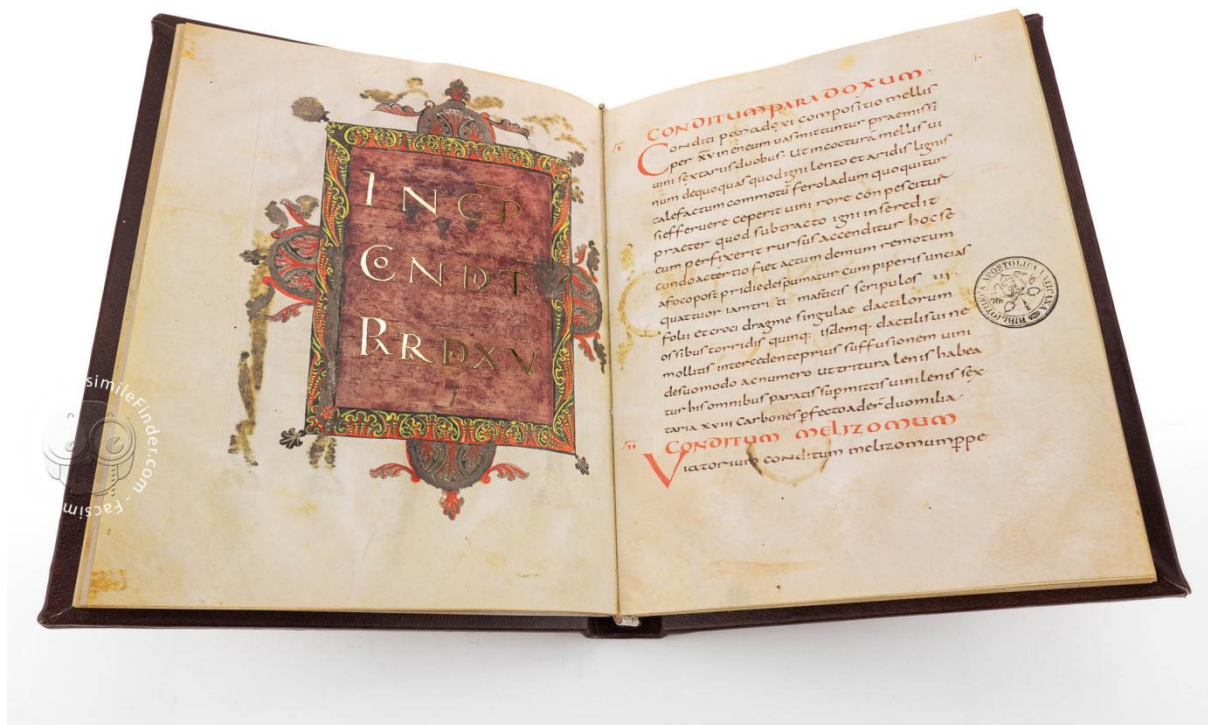 INCP
CONDT
PRRDXV
CONDITUM PARADOXUM
Conditi paradoxi compositio mellis
per xv in eneum vas mittuntur praemissi
vini sextariis duobus. ut in coctura mellis vi
num dequoquas quod igni lento et aridis lignis
calefactum commotu ferola dum quoquitur
si effervere ceperit vini rore conpescitur
praeter quod subtracto igni in se redit
cum perfixerit rursus accenditur hoc se
cundo ac tertio fiet ac tum demum remotum
a foco post pridie despumatur cum piperis uncias
quattuor iam triti masticis scripulos iii
folii et croci dragme singulae dactilorum
ossibus torridis quinq; isdemq dactilis vi ne
mollitis intercedente prius suffusionem vini
de suo modo ac numero ut tritura lenis habea
tur his omnibus paratis supmittis vini lenis sex
taria xviii carbones pfecto ader duo milia
ii
CONDITUM MELIZOMUM
Viatorium conditum melizomum ppe
BIBLIOTHECA APOSTOLICA VATICANA
FacsimileFinder.com - Facsim